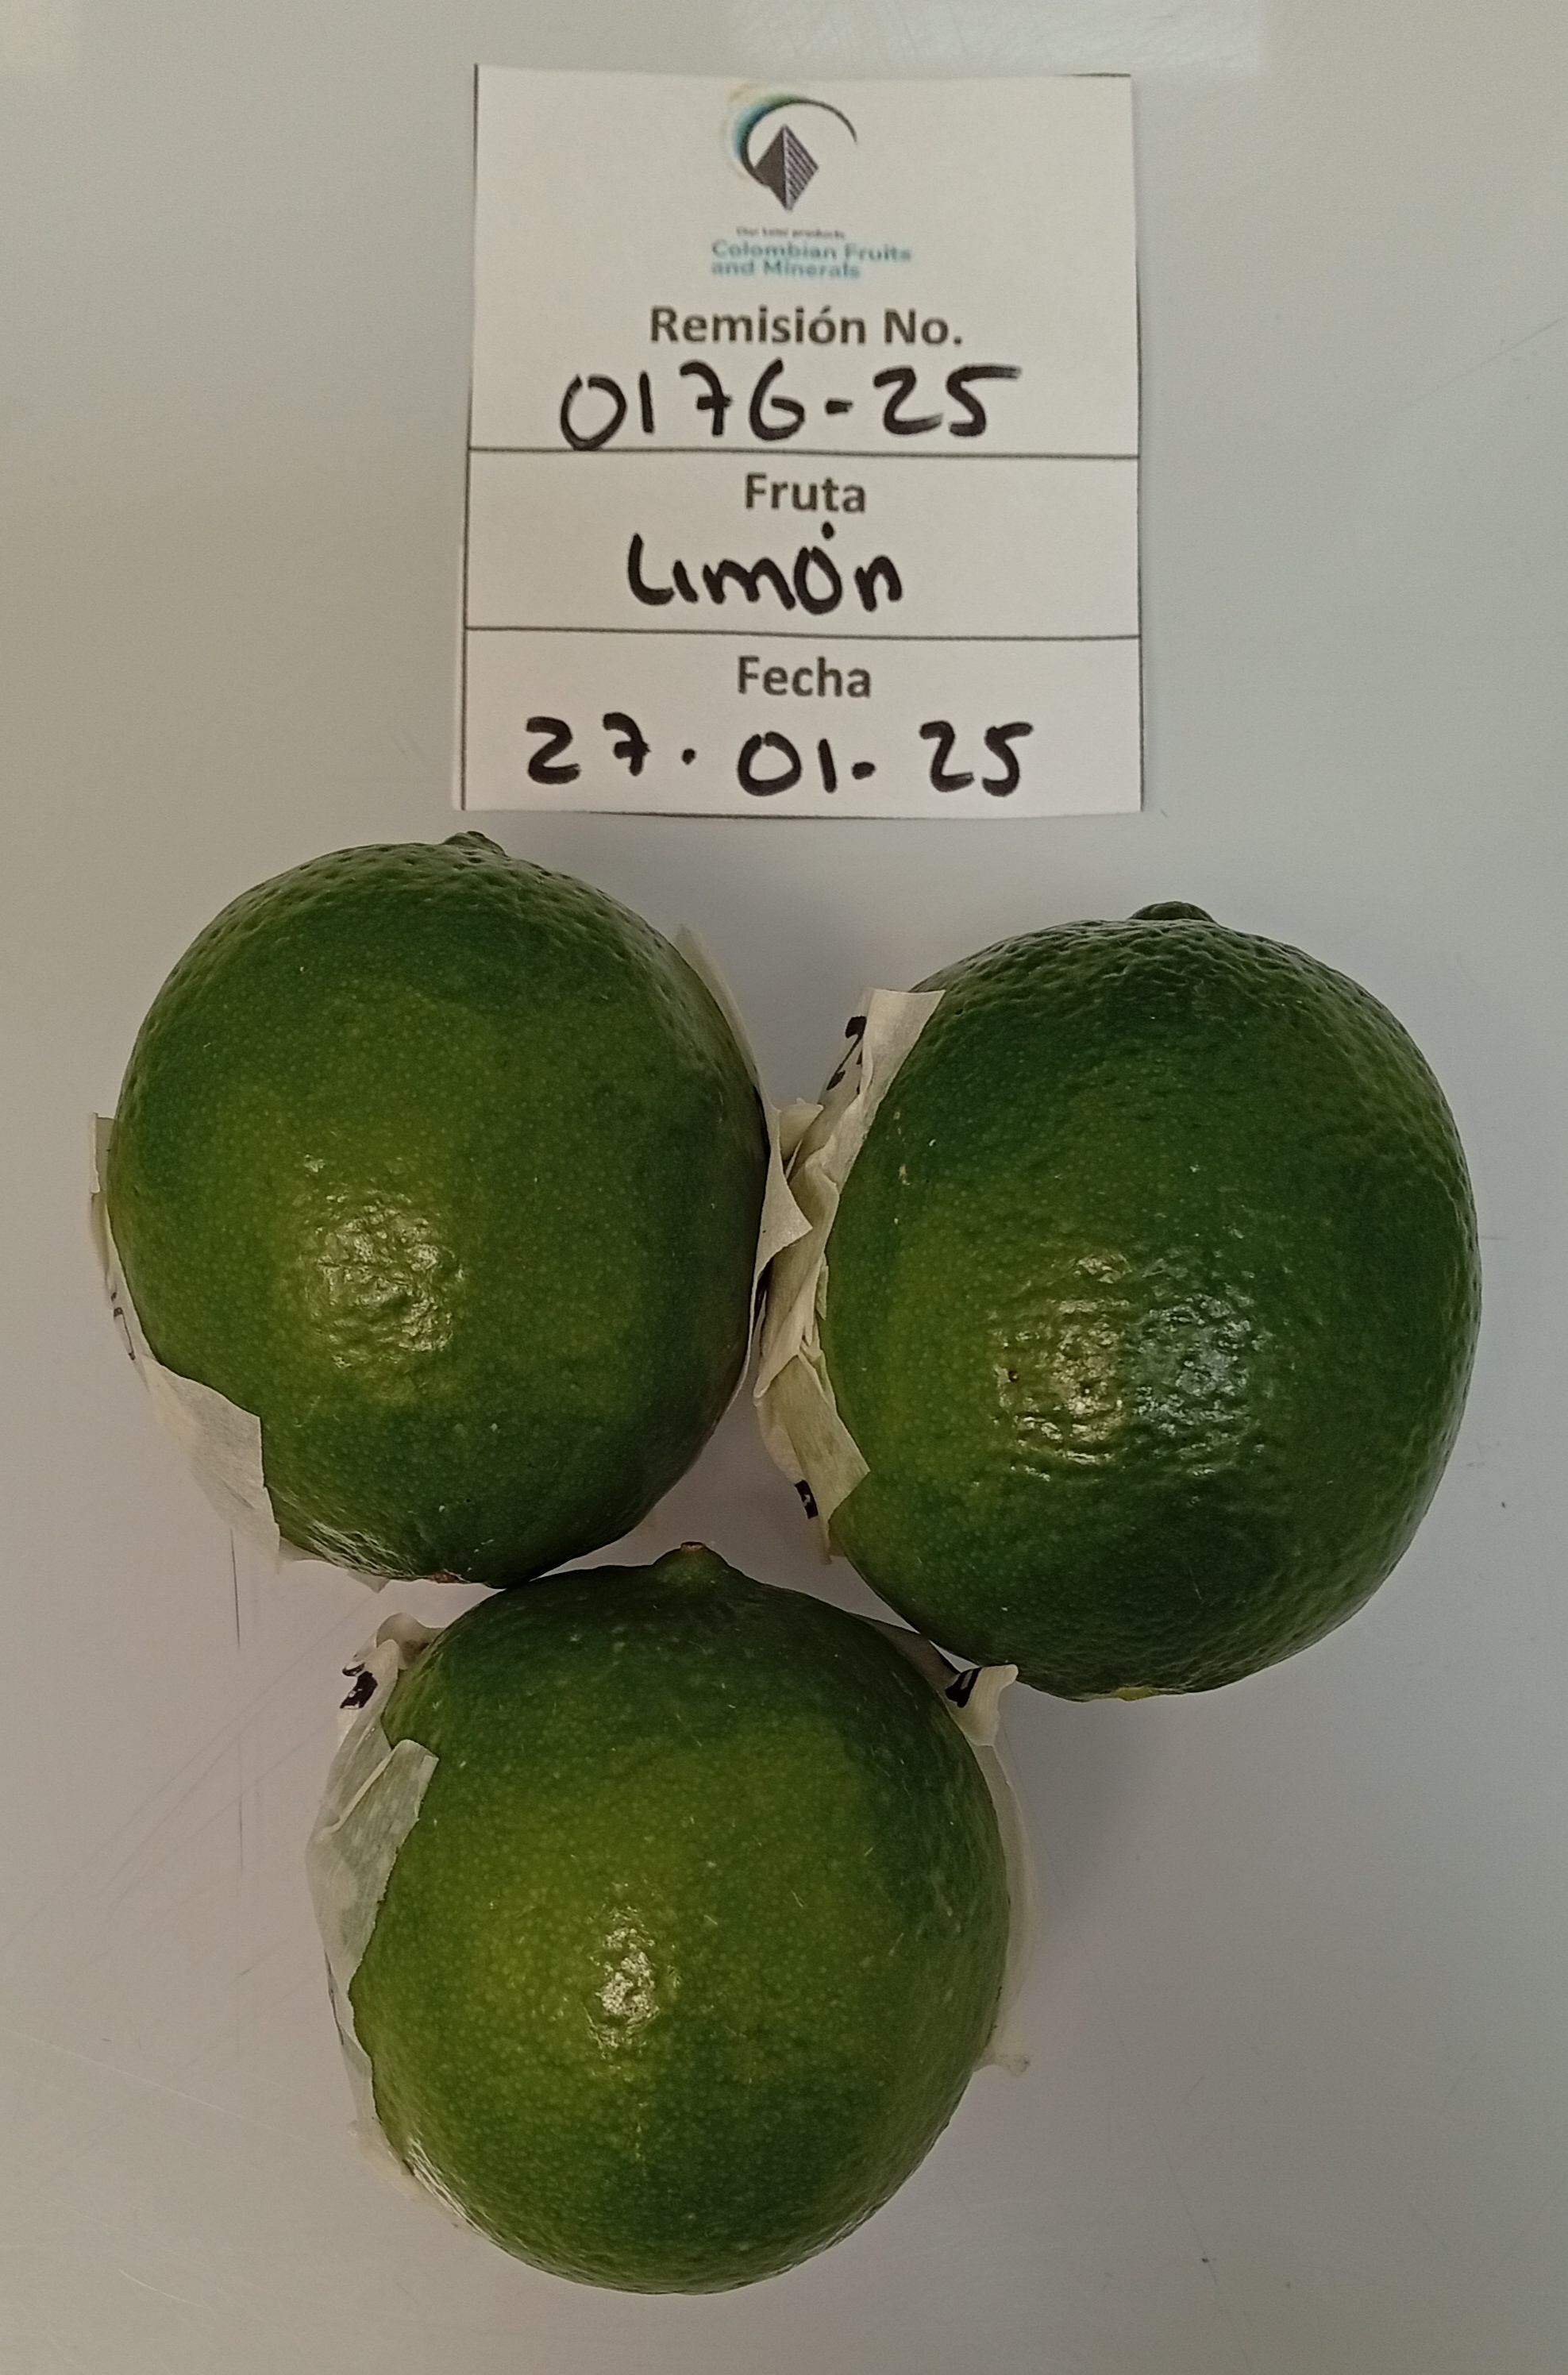 Our best products
Colombian Fruits
and Minerals
Remisión No.
0176-25
Fruta
Limón
Fecha
27.01.25